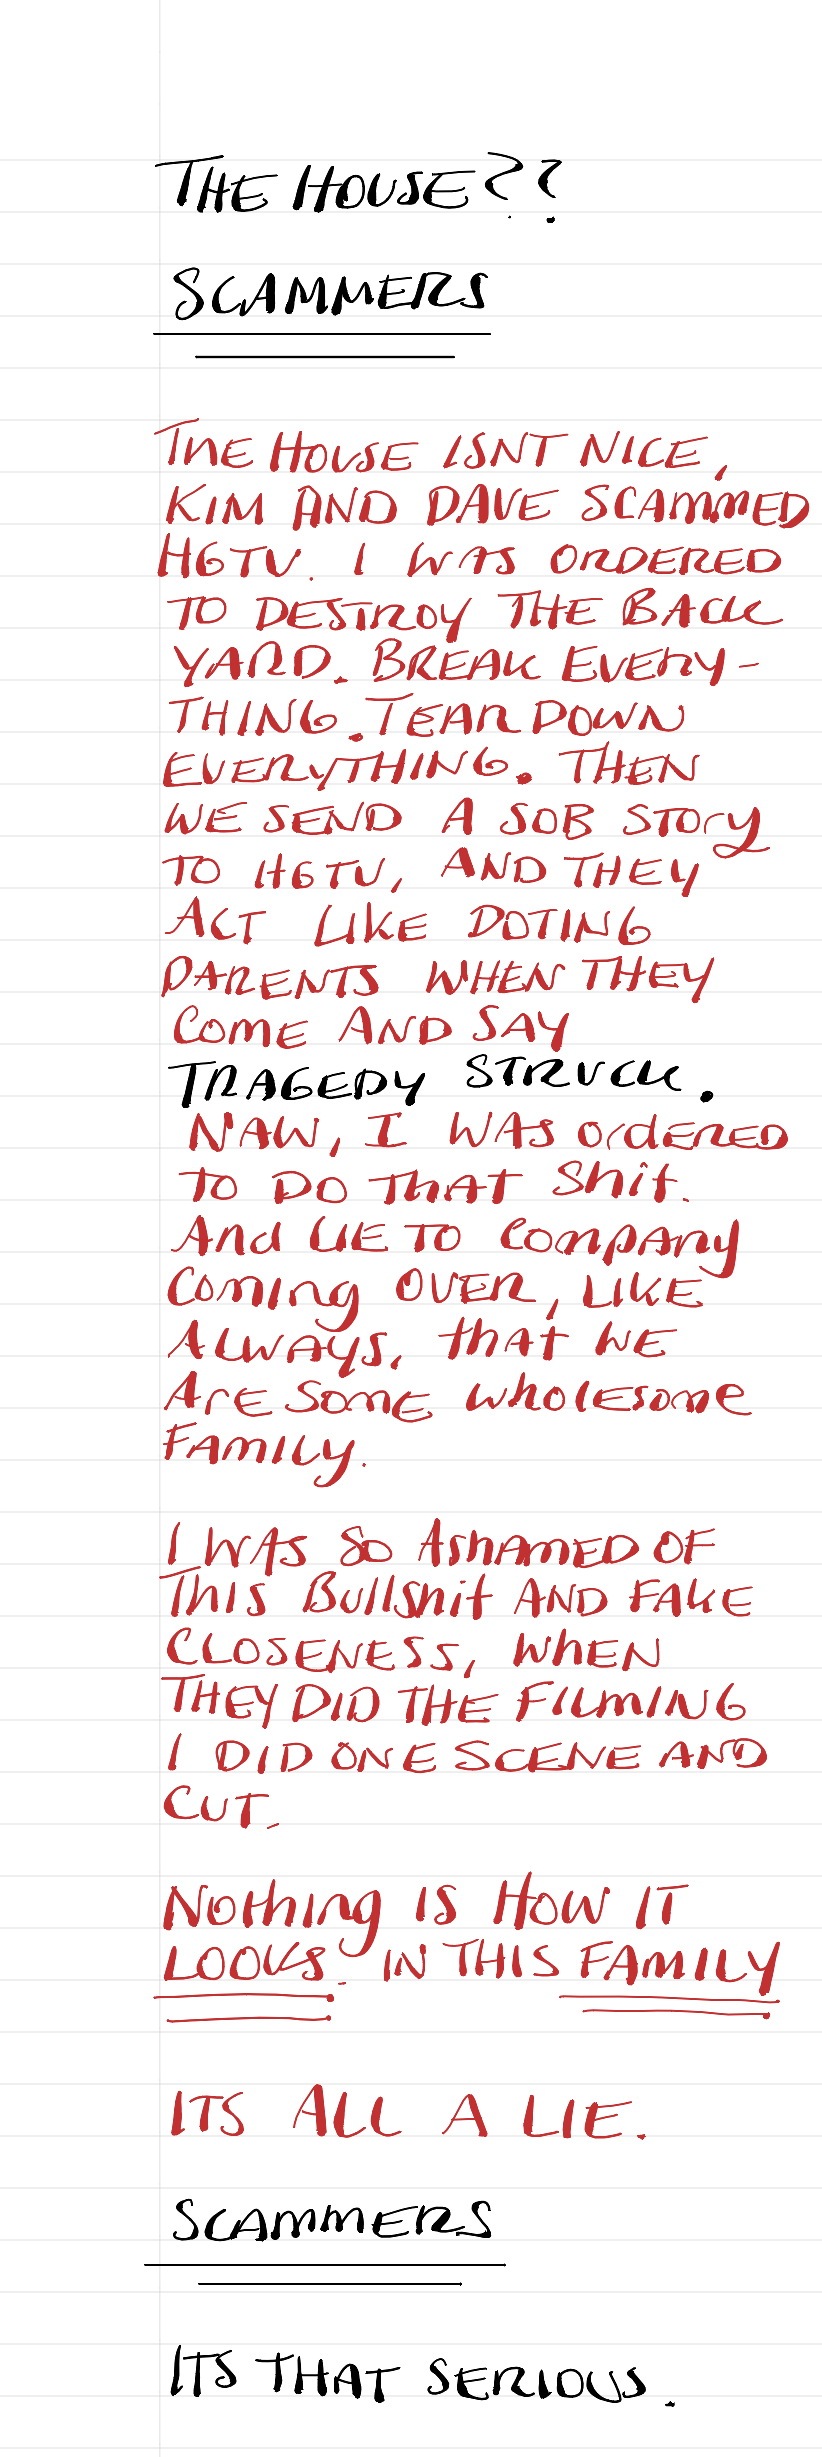 THE HOUSE??
SCAMMERS
THE HOUSE ISNT NICE,
KIM AND DAVE SCAMMED
HGTV. I WAS ORDERED
TO DESTROY THE BACK
YARD. BREAK EVERY-
THING. TEAR DOWN
EVERYTHING. THEN
WE SEND A SOB STORY
TO HGTV, AND THEY
ACT LIKE DOTING
PARENTS WHEN THEY
COME AND SAY
TRAGEDY STRUCK.
NAW, I WAS ORdERED
TO DO THAT Shit.
And LIE TO COmpAny
Coming OVER, LIKE
ALWAYS, that WE
ArE SOME wholesome
FAMILY.
I WAS SO AShAMED OF
This Bullshit AND FAKE
CLOSENESS, WhEN
THEY DID THE FILMING
I DID ONE SCENE AND
CUT.
Nothing IS HOW IT
LOOKS. IN THIS FAMILY
ITS ALL A LIE.
SCAMMERS
ITS THAT SERIOUS.